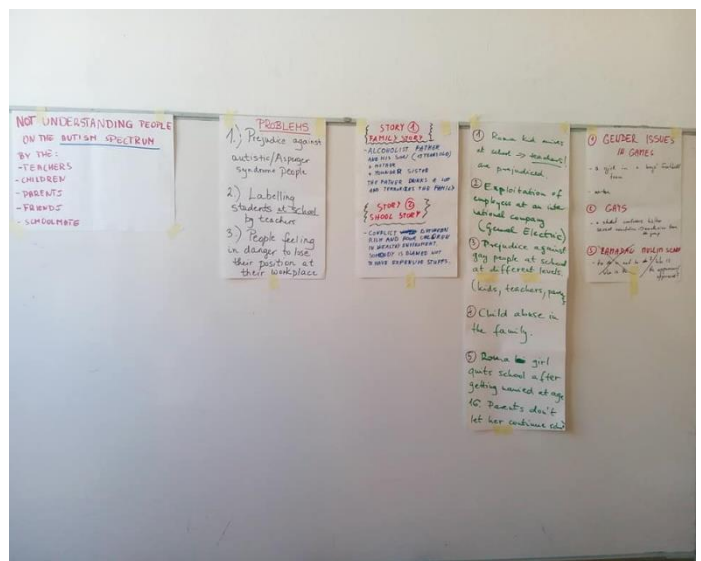 NOT UNDERSTANDING PEOPLE
ON THE AUTISM SPECTRUM
BY THE:
-TEACHERS
-CHILDREN
-PARENTS
-FRIENDS
-SCHOOLMATE
PROBLEMS
1.) Prejudice against
autistic/Asperger
syndrome people
2.) Labelling
students at school
by teachers
3.) People feeling
in danger to lose
their position at
their workplace
STORY 1
FAMILY STORY
-ALCOHOLIST FATHER
AND HIS SON
+ MOTHER
+ YOUNGER SISTER
THE FATHER DRINKS
AND TERRORIZES THE FAMILY
STORY 2
SHOOL STORY
-CONFLICT BETWEEN
RICH AND POOR CHILDREN
IN WEALTHY ENVIRONMENT.
SOMEBODY IS BLAMED NOT
TO HAVE EXPENSIVE STUFFS.
1 Roma kid arrives
at school → teachers
are prejudiced.
2 Exploitation of
employees at an inter
national company
(General Electric)
3 Prejudice against
gay people at school
at different levels.
(kids, teachers,
4 Child abuse in
the family.
5 Roma girl
quits school after
getting married at age
16. Parents don't
let her continue
GENDER ISSUES
IN GAMES
- a girl in a boys' football
team
GAYS
RAMADAN MUSLIM